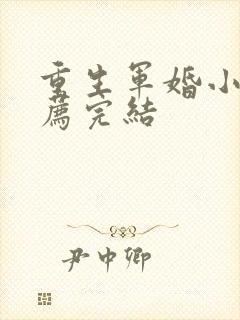 重生軍婚小
薦完結
尹中卿